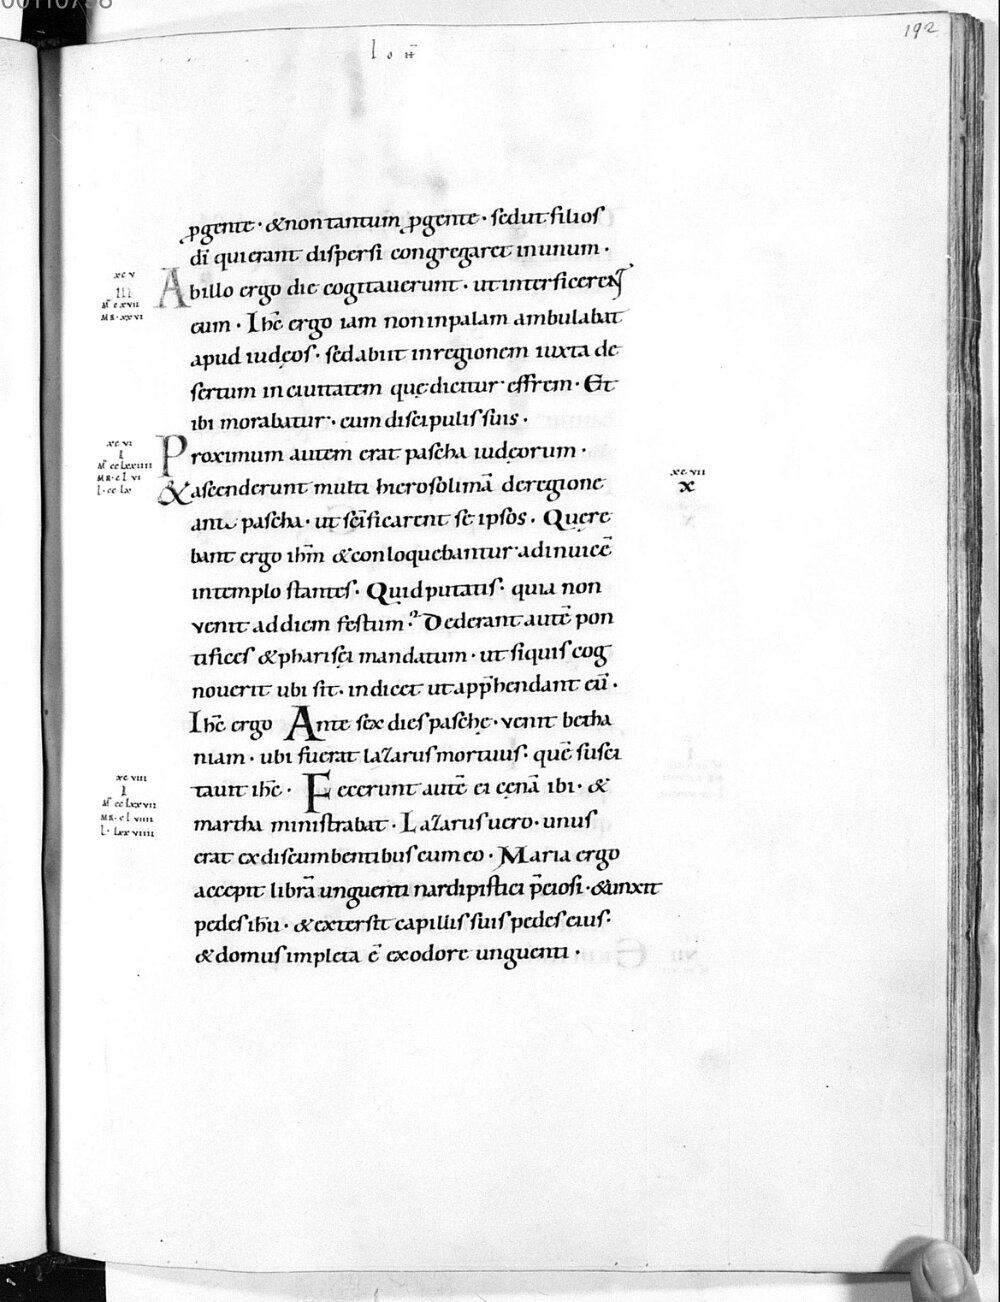 00110798
192
IOH̄
ꝓgente · & non tantum ꝓgente · sed ut filios
dī qui erant dispersi congregaret in unum ·
xc v
III
Mͭ cxvii
MR · xxvi
Abillo ergo die cogitauerunt · ut interficerent
eum · Ihc̄ ergo iam non in palam ambulabat
apud iudęos · sed abiit in regionem iuxta de
sertum in ciuitatem quę dicitur effrem · Et
ibi morabatur · cum discipulis suis ·
xc vi
I
Mͭ cclxxiiii
MR · clvi
L · cclx
Proximum autem erat pascha iudęorum ·
xc vii
x
& ascenderunt multi hierosolimā de regione
ante pascha · ut sc̄ificarent se ipsos · Quęre
bant ergo ihm̄ & conloquebantur ad inuicē
in templo stantes · Quid putatis · quia non
venit ad diem festum? Dederant autē pon
tifices & pharisęi mandatum · ut siquis cog
nouerit ubi sit · indicet ut app̄hendant eū ·
Ihc̄ ergo Ante sex dies paschę · venit betha
niam · ubi fuerat lazarus mortuus · quē susci
xc viii
I
Mͭ cclxxvii
MR · clviiii
L · lxxviiii
tauit ihc̄ · Fecerunt autē ei cęnā ibi · &
martha ministrabat · Lazarus uero · unus
erat ex discumbentibus cum eo · Maria ergo
accepit librā unguenti nardi pistici p̄ciosi · & unxit
pedes ihu̅ · & extersit capillis suis pedes eius ·
& domus impleta ē ex odore unguenti ·